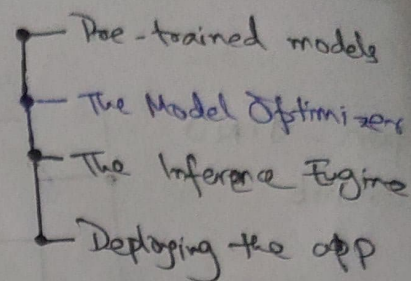 Pre-trained models
The Model Optimizers
The Inference Engine
Deploying the app